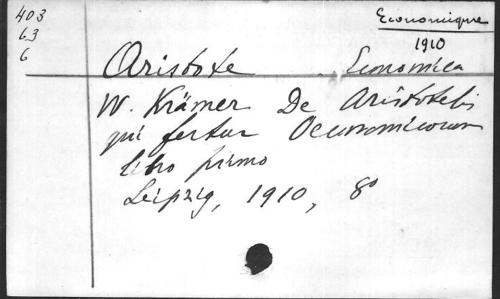 403
63
6
Economique
1910
Aristote Economica
W. Krämer De Aristotelis
qui fertur Oeconomicorum
libro primo
Leipzig, 1910, 8º